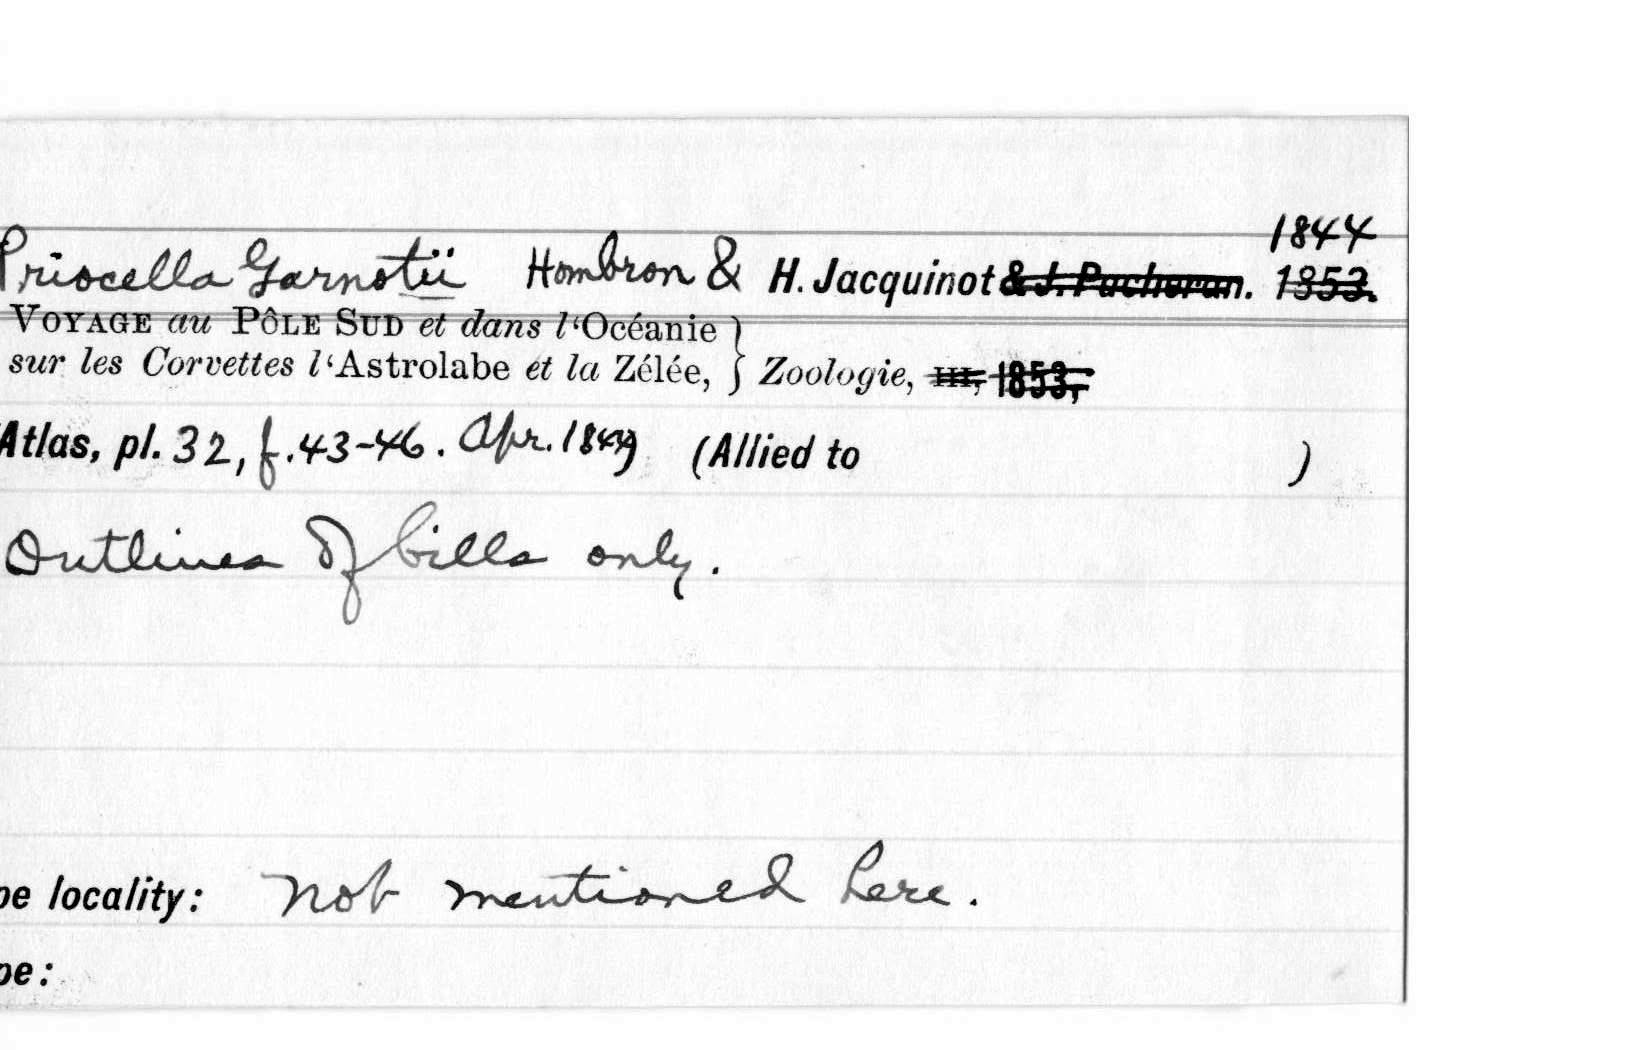 1844
Priocella Garnotii Hombron & H. Jacquinot & J. Pucheran. 1853.
VOYAGE au PÔLE SUD et dans l‘Océanie }
sur les Corvettes l‘Astrolabe et la Zélée, } Zoologie, III, 1853,
Atlas, pl. 32, f. 43-46. Apr. 1844) (Allied to )
Outlines of bills only.
pe locality: Not mentioned here.
pe: